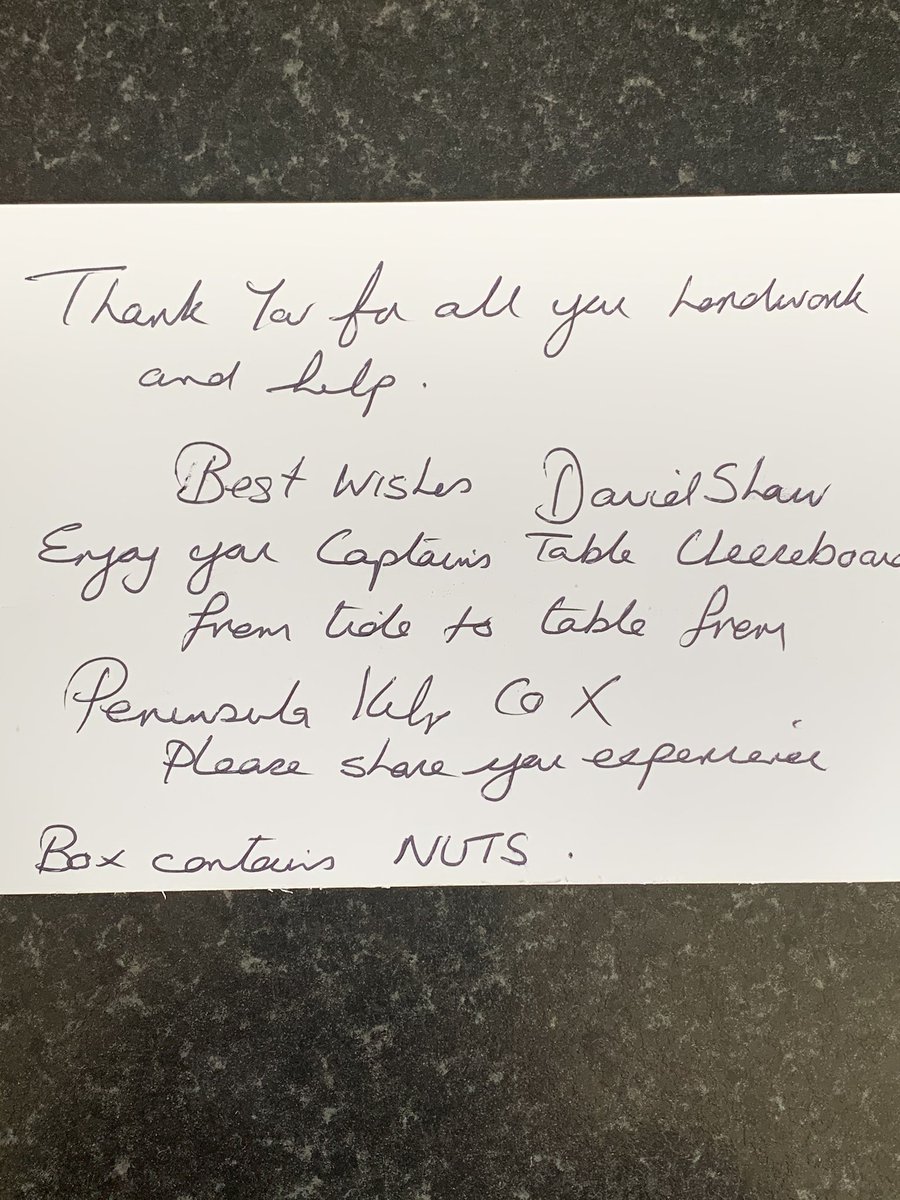 Thank You for all your hardwork
and help.
Best Wishes David Shaw
Enjoy your Captains Table Cheeseboard
from tide to table from
Peninsula Kelp Co X
Please share your experience
Box contains NUTS.